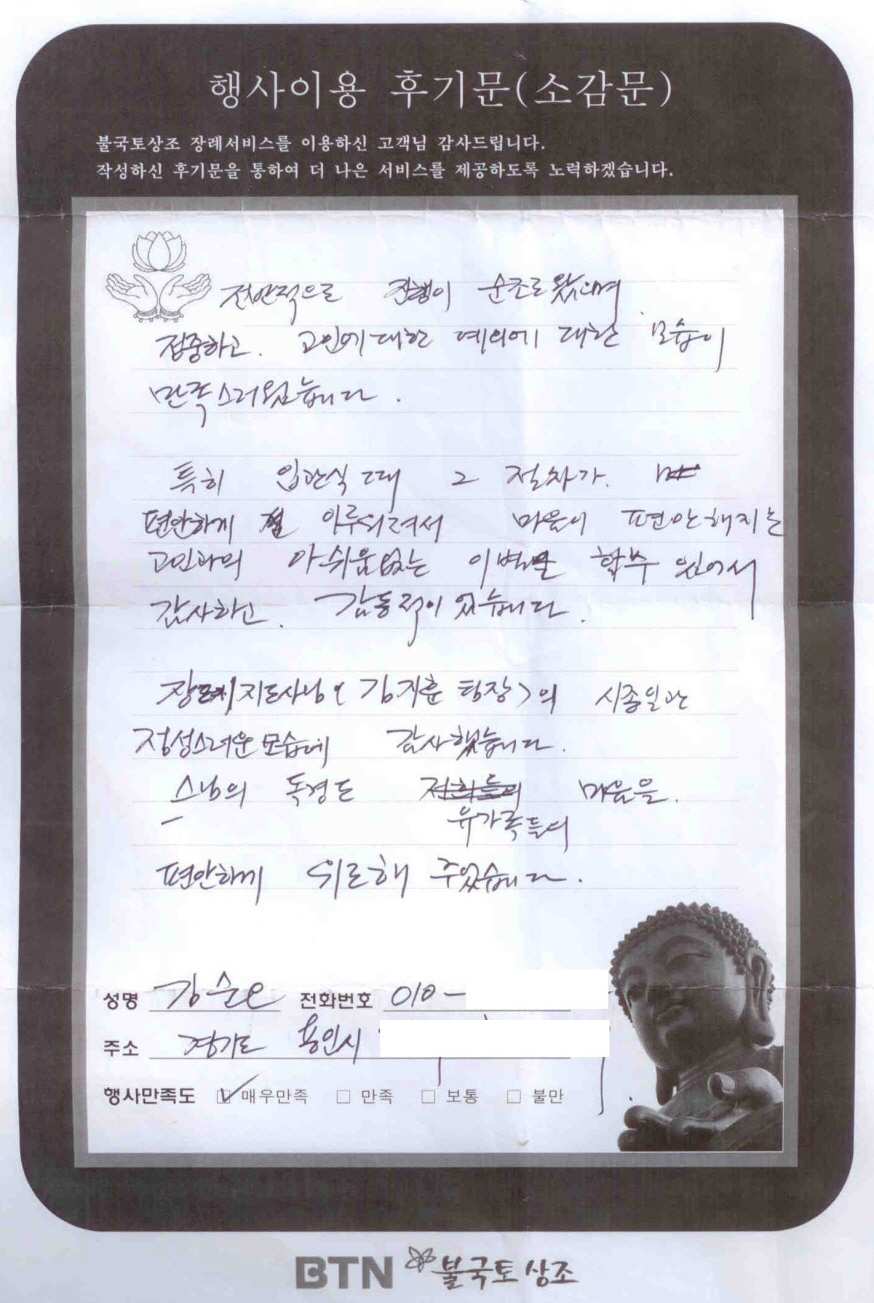 행사이용 후기문(소감문)
불국토상조 장례서비스를 이용하신 고객님 감사드립니다.
작성하신 후기문을 통하여 더 나은 서비스를 제공하도록 노력하겠습니다.
전반적으로 진행이 순조로왔으며
집중하고. 고인에 대한 예의에 대한 모습이
만족스러웠습니다.
특히 입관식 때 그 절차가.
편안하게 이루워져서 마음이 편안해지는
고인과의 아쉬움없는 이별을 할수 있어서
감사하고. 감동적이었습니다.
장례지도사님(김지훈 팀장)의 시종일관
정성스러운 모습에 감사했습니다.
스님의 독경도 저희들의 마음을.
유가족들의
편안하게 위로해 주었습니다.
성명 강순 전화번호 010-
주소 경기도 용인시
행사만족도 매우만족 만족 보통 불만
BTN 불국토상조